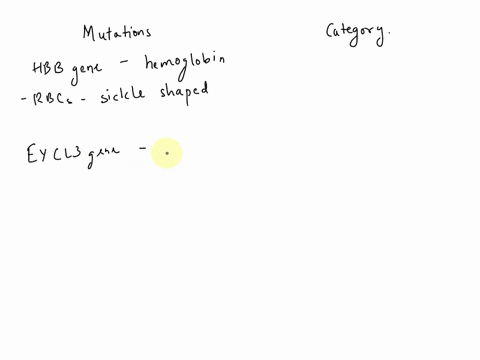 Mutations Category.
HBB gene - hemoglobin
- RBCs - sickle shaped
EYCL3 gene -